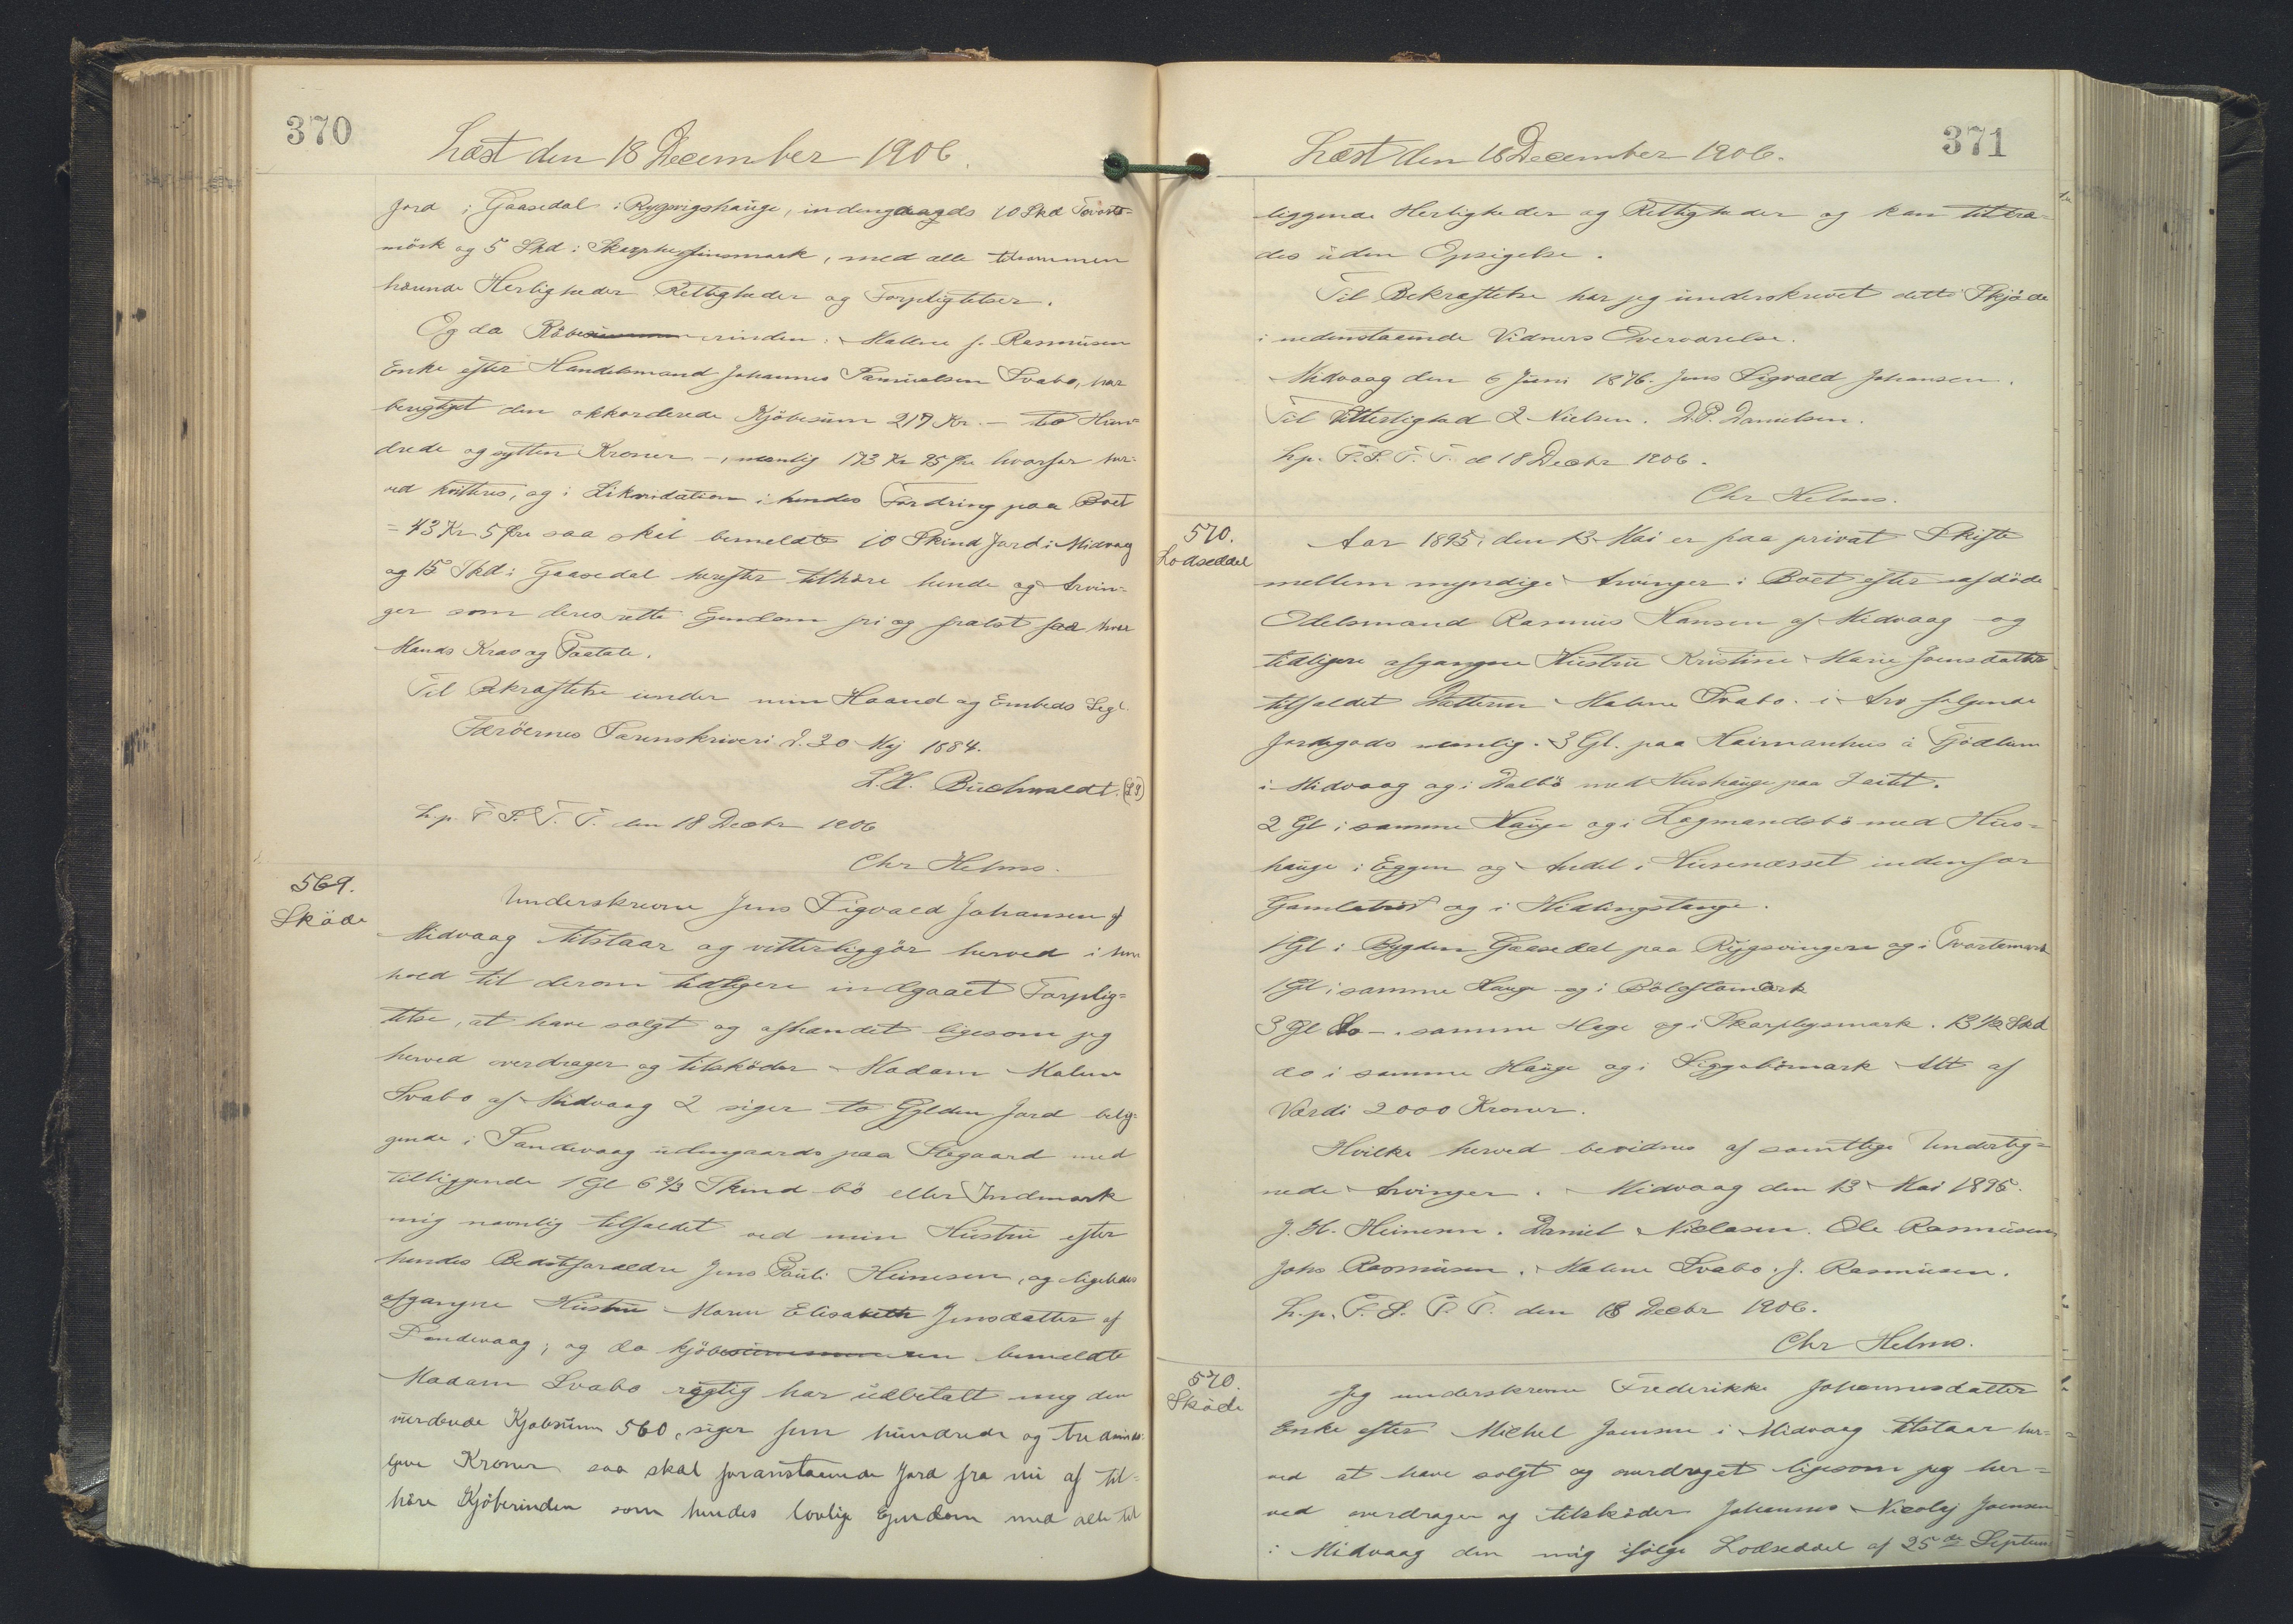 370
Læst den 18 December 1906.
Jord i Gaasedal i Rygsvigshauge, indengaards 10 Skd Tvørts-
mörk og 5 Skd i Skarpheysinsmark, med alle tilsammen
hørende Herligheder Rettigheder og Forpligtelser.
Og da Köberinden: Malene f. Rasmusen
Enke efter Handelsmand Johannes Samuelsen Svabo, har
berigtiget den akkorderede Kjöbesum 217 Kr. - to Hun-
drede og sytten Kroner -, nemlig 173 Kr 95 Øre hvorfor her-
ved kvitteres, og i Likvidation i hendes Fordring paa Boet
= 43 Kr. 5 Øre saa skal bemeldte 10 Skind Jord i Midvag
og 15 Skd i Gaasedal herefter tilhöre hende og Arvin-
ger som deres rette Ejendom fri og frelst for hver
Mands Krav og Paatale.
Til Bekræftelse under min Haand og Embeds Segl.
Færöernes Sorenskriveri d. 30 Maj 1884.
L.H. Buchwaldt. (LS)
L. p. F. S. T. T. den 18 Decbr 1906
Chr Helms.
569.
Sköde
Underskrevne Jens Sigvald Johansen af
Midvaag tilstaar og vitterliggör herved i hen
hold til derom tidligere indgaaet Forplig-
telse, at have solgt og afhændet ligesom jeg
herved overdrager og tilsköder Madam Malene
Svabo af Midvaag 2 siger to Gylden Jord belig-
gende i Sandevaag udengaards paa Stegaard med
tilliggende 1 Gl 6 2/3 Skind bö eller Indmark
mig navnlig tilfaldet ved min Hustru efter
hendes Bedstforældre Jens Pauli Heinesen, og ligeledes
afgangne Hustru Maren Elisabeth Jensdatter af
Sandevaag; og da kjöberinden bemeldte
Madam Svabo rigtig har udbetalt mig den
vurderede Kjøbesum 560, siger fem hundrede og tredsinds-
tyve Kroner saa skal foranstaaende Jord fra nu af til-
höre Kjöberinden som hendes lovlige Ejendom med alle til
371
Læst den 18 December 1906.
liggende Herligheder og Rettigheder og kan tiltræ-
des uden Opsigelse.
Til Bekræftelse har jeg underskrevet dette Skjöde
i nedenstaaende Vidners Overværelse.
Midvaag den 6 Juni 1876. Jens Sigvald Johansen.
Til Vitterlighed J. Nielsen. D.P. Danielsen.
L. p. F. S. T. T. d 18 Decbr 1906.
Chr Helms.
570.
Lodseddel
Aar 1895, den 13 Mai er paa privat Skifte
mellem myndige Arvinger i Boet efter afdöde
Odelsmand Rasmus Hansen af Midvaag og
tidligere afgangne Hustru Kristine Marie Joensdatter
tilfaldet Datteren Malene Svabo i Arv følgende
Jordegods nemlig. 3 Gl. paa Heimanhus à Fjödlum
i Midvaag og i Dalbö med Hushauge paa Jaitt.
2 Gl i samme Hauge og i Lagmandsbö med Hus-
hauge i Eggen og Andel i Husenæsset indenfor
Gamletröd og i Hidlingstange.
1 Gl i Bygden Gaasedal paa Rygsvingere og i Tvørtemørk
1 Gl i samme Hauge og i Bölgflamørk
3 Gl do - i samme Hage og i Skarpheysmark. 13 1/3 Skd
do i samme Hauge og i Siggabömark Alt af
Værdi 2000 Kroner.
Hvilke herved bevidnes af samtlige Underteg-
nede Arvinger. Midvaag den 13 Mai 1895.
J. H. Heinesen. Daniel Niclasen. Ole Rasmusen
Johs Rasmusen. Malene Svabo. f. Rasmusen.
L. p. F. S. T. T. den 18 Decbr 1906.
Chr Helms.
570.
Sköde
Jeg underskrevne Frederikke Johannesdatter
Enke efter Michel Joensen i Midvaag tilstaar her-
ved at have solgt og overdraget ligesom jeg her-
ved overdrager og tilsköder Johannes Nicolaj Joensen
i Midvaag den mig ifølge Lodseddel af 25de Septem